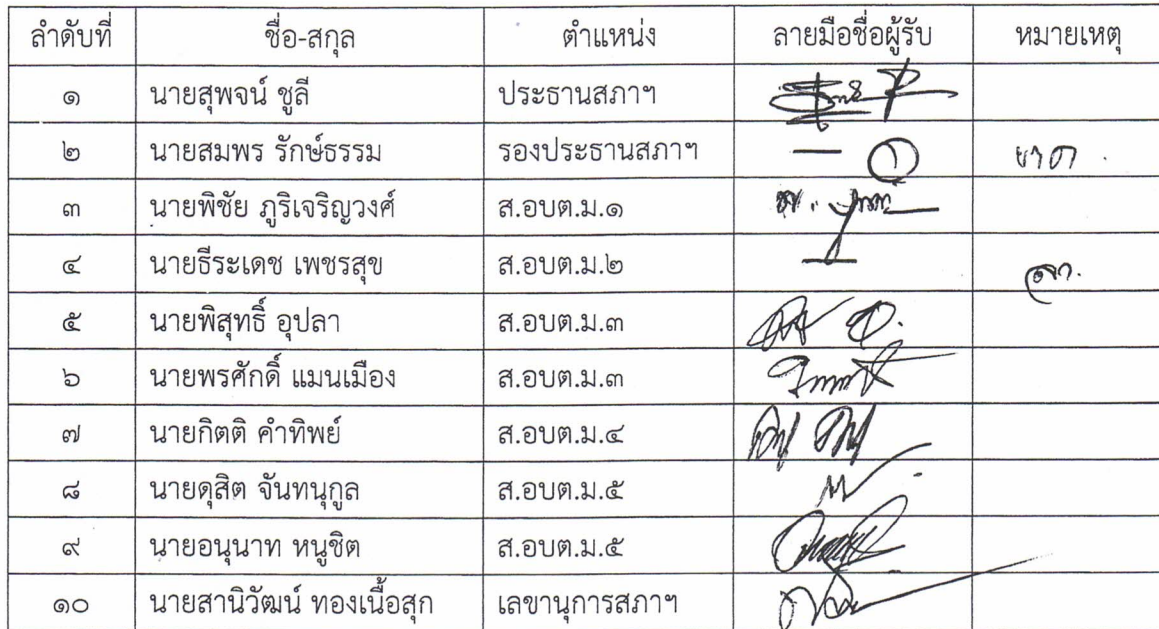 ลำดับที่ ชื่อ-สกุล ตำแหน่ง ลายมือชื่อผู้รับ หมายเหตุ
๑ นายสุพจน์ ชูลี ประธานสภาฯ
๒ นายสมพร รักษ์ธรรม รองประธานสภาฯ ขาด
๓ นายพิชัย ภูริเจริญวงศ์ ส.อบต.ม.๑
๔ นายธีระเดช เพชรสุข ส.อบต.ม.๒ ลา.
๕ นายพิสุทธิ์ อุปลา ส.อบต.ม.๓
๖ นายพรศักดิ์ แมนเมือง ส.อบต.ม.๓
๗ นายกิตติ คำทิพย์ ส.อบต.ม.๔
๘ นายดุสิต จันทนุกูล ส.อบต.ม.๕
๙ นายอนุนาท หนูชิต ส.อบต.ม.๕
๑๐ นายสานิวัฒน์ ทองเนื้อสุก เลขานุการสภาฯ